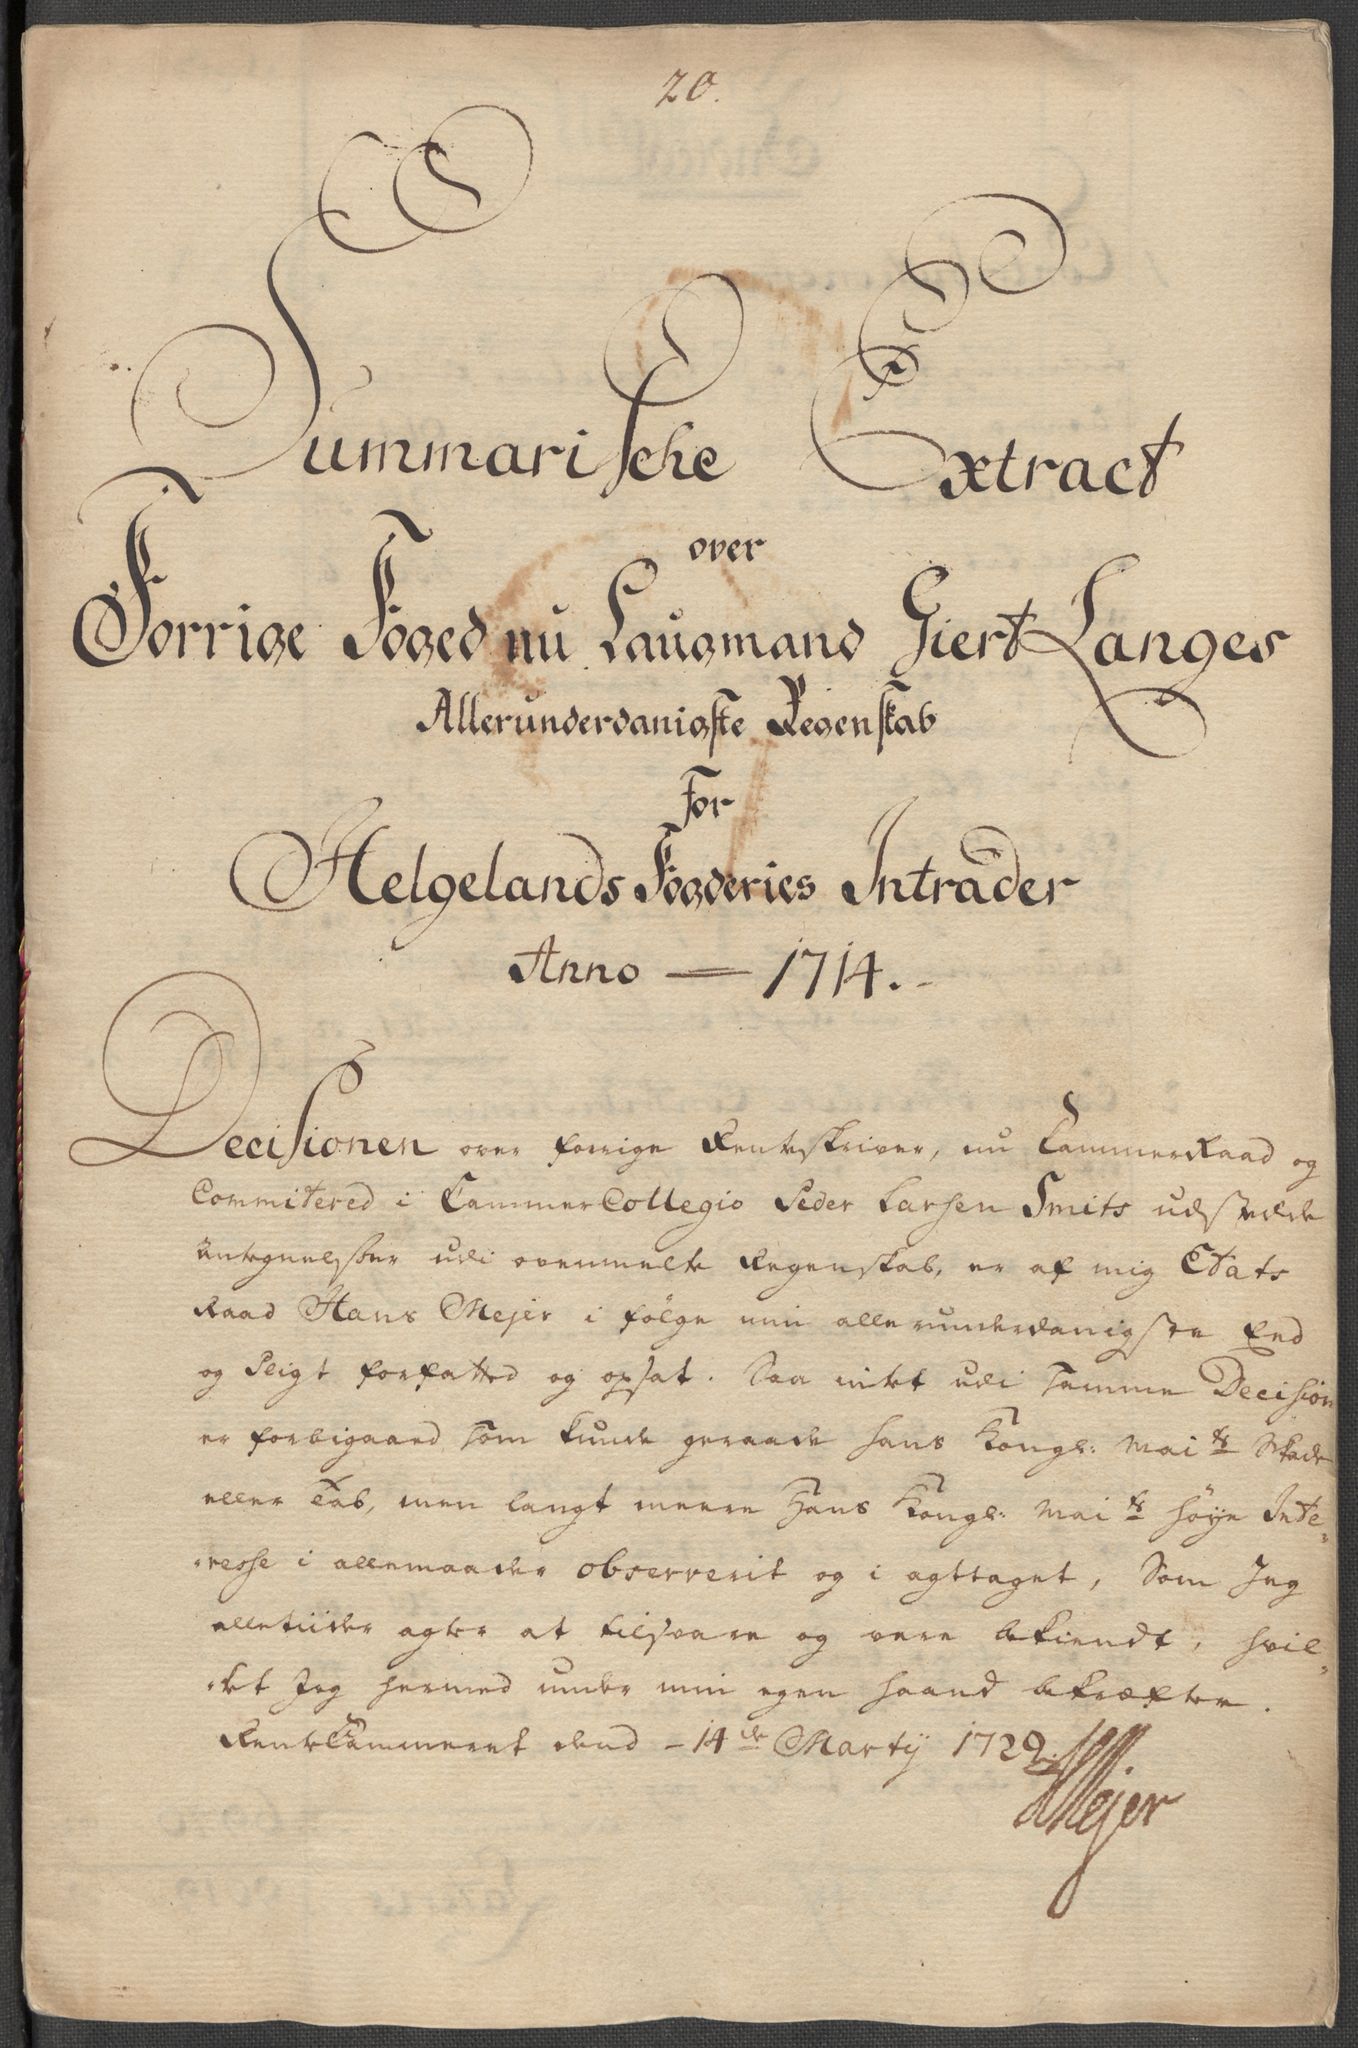 20.
Summarische Extract
over
Forrige Foged nu Laugmand Giert Langes
Allerunderdanigste Regenskab
For
Helgelands Fogderies Intrader
Anno — 1714.
Decisionen over forrige Rentskriver, nu CammerRaad og
Committered i CammerCollegio Peder Larsen Smits udstædde
Antegnelsser udi ovenmelte Regenskab, er af mig Etats
Raad Hans Mejer i følge min allerunderdanigste Eed
og Pligt forfatted og opsat. Saa intet udi samme Decision
er forbigaaed som kunde geraade hans Kongl: Mai.ts Skade
eller Tab, men langt meere Hans Kongl: Mai.ts høye Inte-
-resse i allemaader observerit og i agttaget, Som Jeg
alletiider agter at tilsvare og være bekiendt, hvil-
-ket Jeg hermed under min egen haand bekræfter.
RenteCammeret dend - 14de Martij 1722.
HMejer